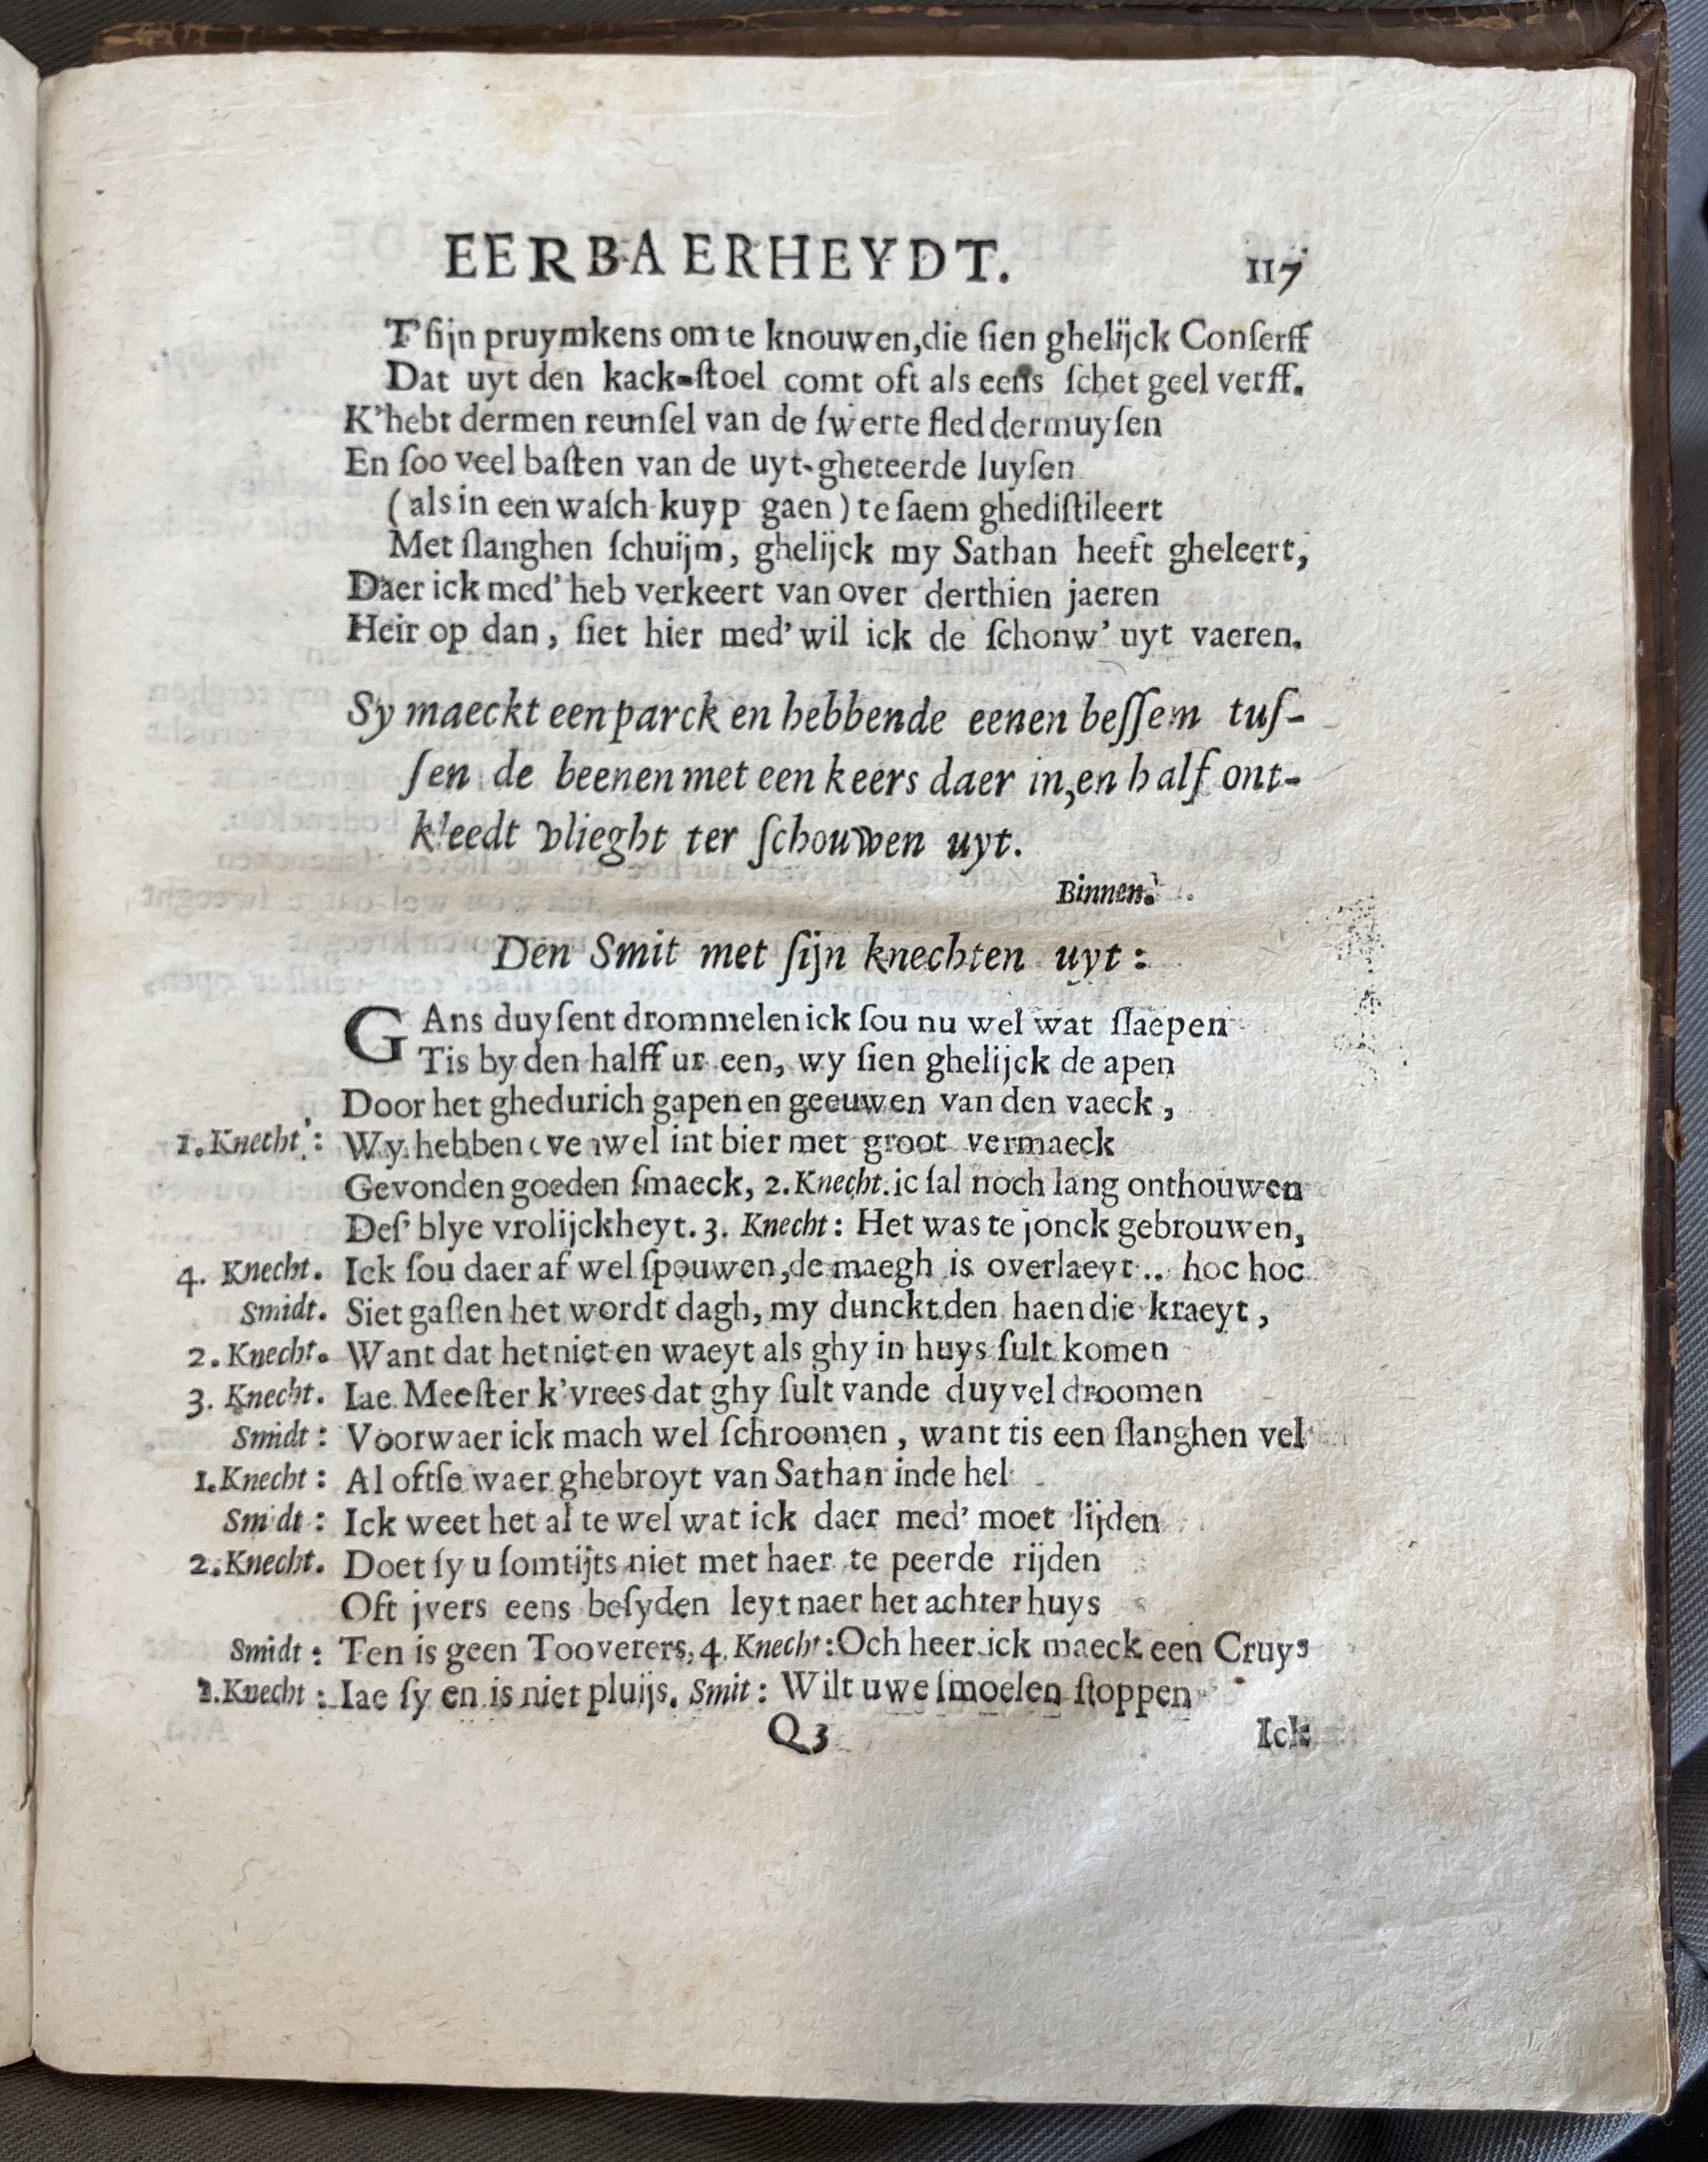 EERBAERHEYDT. 117
T'ſijn pruymkens om te knouwen, die ſien ghelijck Conſerff
Dat uyt den kack-ſtoel comt oft als eens ſchet geel verff.
K'hebt dermen reunſel van de ſwerte fleddermuyſen
En ſoo veel baſten van de uyt-gheteerde luyſen
(als in een waſch-kuyp gaen) te ſaem ghediſtileert
Met ſlanghen ſchuijm, ghelijck my Sathan heeft gheleert,
Daer ick med' heb verkeert van over derthien jaeren
Heir op dan, ſiet hier med' wil ick de ſchonw' uyt vaeren.
Sy maeckt een parck en hebbende eenen beſſem tuſ-
ſen de beenen met een keers daer in, en half ont-
kleedt vlieght ter ſchouwen uyt.
Binnen.
Den Smit met ſijn knechten uyt:
GAns duyſent drommelen ick ſou nu wel wat ſlaepen
Tis by den halff ur een, wy ſien ghelijck de apen
Door het ghedurich gapen en geeuwen van den vaeck,
1. Knecht: Wy hebben evenwel int bier met groot vermaeck
Gevonden goeden ſmaeck, 2. Knecht. ic ſal noch lang onthouwen
Deſ' blye vrolijckheyt. 3. Knecht: Het was te jonck gebrouwen,
4. Knecht. Ick ſou daer af wel ſpouwen, de maegh is overlaeyt .. hoc hoc
Smidt. Siet gaſten het wordt dagh, my dunckt den haen die kraeyt,
2. Knecht. Want dat het niet en waeyt als ghy in huys ſult komen
3. Knecht. Iae Meeſter k'vrees dat ghy ſult vande duyvel droomen
Smidt: Voorwaer ick mach wel ſchroomen, want tis een ſlanghen vel
1. Knecht: Al oftſe waer ghebroyt van Sathan inde hel
Smidt: Ick weet het al te wel wat ick daer med' moet lijden
2. Knecht. Doet ſy u ſomtijts niet met haer te peerde rijden
Oft jvers eens beſyden leyt naer het achter huys
Smidt: Ten is geen Tooverers, 4. Knecht: Och heer ick maeck een Cruys
1. Knecht: Iae ſy en is niet pluijs. Smit: Wilt uwe ſmoelen ſtoppen
Q3 Ick